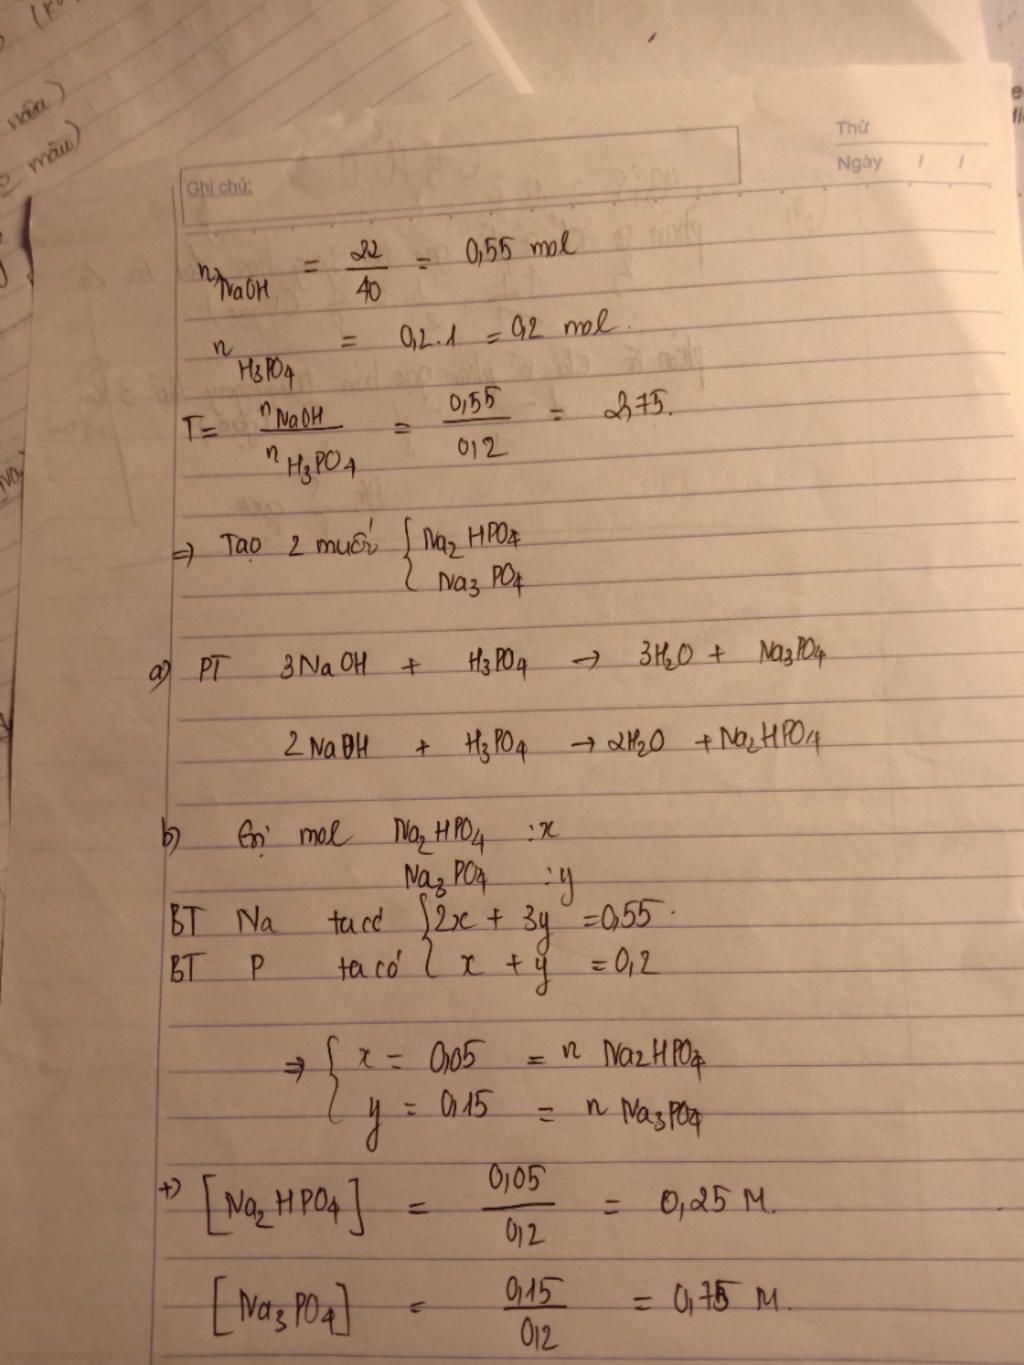 nâu)
màu)
Thứ
Ngày / /
Ghi chú:
n NaOH = 22/40 = 0,55 mol
n H3PO4 = 0,2.1 = 0,2 mol.
T = n NaOH / n H3PO4 = 0,55/0,2 = 2,75.
=> Tạo 2 muối { Na2HPO4
Na3PO4
a) PT 3NaOH + H3PO4 → 3H2O + Na3PO4
2NaOH + H3PO4 → 2H2O + Na2HPO4
b) Gọi mol Na2HPO4 : x
Na3PO4 : y
BT Na ta có { 2x + 3y = 0,55.
BT P ta có { x + y = 0,2
=> { x = 0,05 = n Na2HPO4
y = 0,15 = n Na3PO4
+) [Na2HPO4] = 0,05/0,2 = 0,25 M.
[Na3PO4] = 0,15/0,2 = 0,75 M.